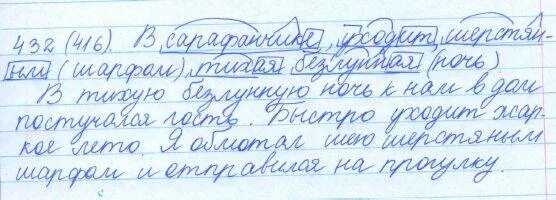 432 (416). В сарафанчике, уходит, шерстян-
ным (шарфом), тихая безлунная (ночь)
В тихую безлунную ночь к нам в дом
постучался гость. Быстро уходит жар-
кое лето. Я обмотал шею шерстяным
шарфом и отправился на прогулку.